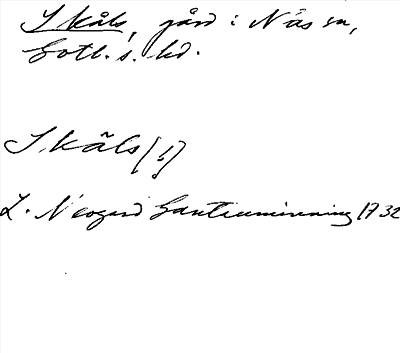 Skåls, gård i Näs sn,
Gotl. s. hd.
Skåls [!]
L. Neogard Gautauminning 1732